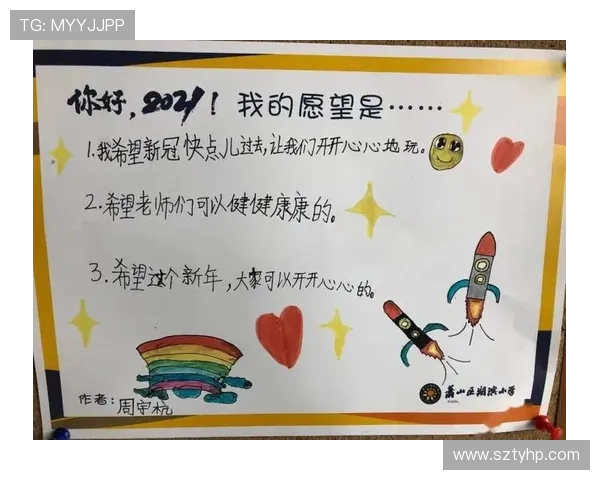 TG: MYYJJPP
你好,2021! 我的愿望是……
1.我希望新冠快点儿过去,让我们开开心心地玩。
2.希望老师们可以健健康康的。
3.希望这个新年,大家可以开开心心的。
萧山区湖滨小学
作者:周宇杭
www.sztyhp.com